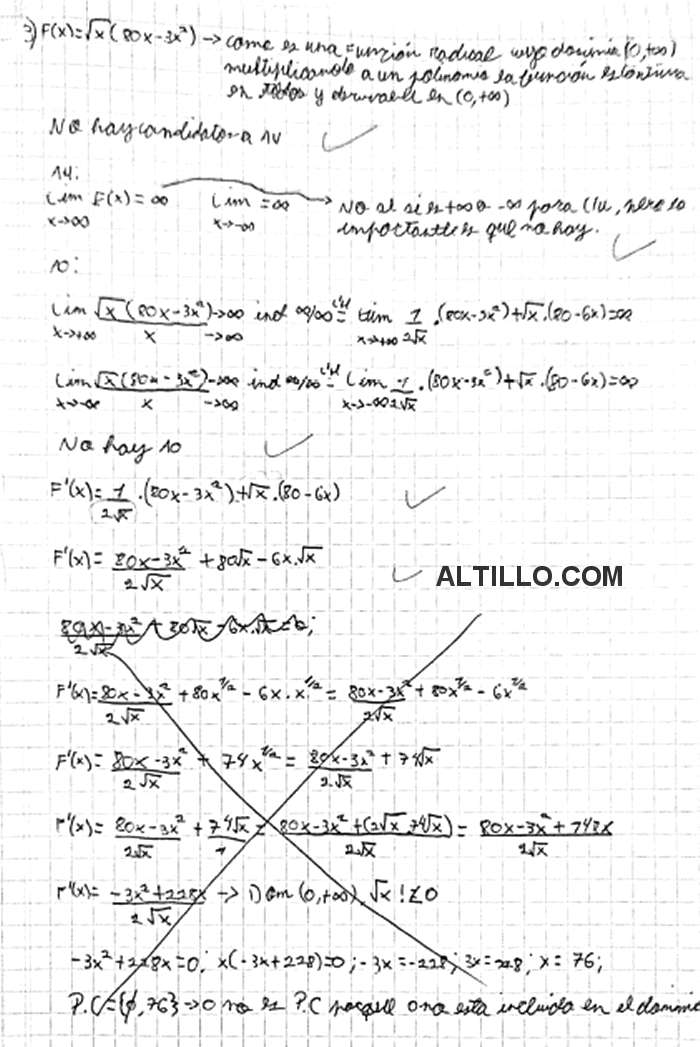 3) F(x)=√x (80x-3x²) → como es una función radical cuyo dominio (0,+∞)
multiplicando a un polinomio la función es continua
en todos y derivable en (0,+∞)
No hay candidatos a AV
AH:
Lim F(x) = ∞ Lim = ∞ → No sé si es +∞ o -∞ para C/u, pero lo
x→∞ x→-∞ importante es que no hay.
AO:
Lim √x (80x-3x²)→∞ ind ∞/∞ L'H = Lim 1 .(80x-3x²)+√x.(80-6x)=∞
x→+∞ x →∞ x→+∞ 2√x
Lim √x (80x-3x²)→∞ ind ∞/∞ L'H = Lim 1 .(80x-3x²)+√x.(80-6x)=∞
x→-∞ x →∞ x→-∞ 2√x
No hay AO
F'(x)= 1 .(80x-3x²)+√x.(80-6x)
2√x
F'(x)= 80x-3x² + 80√x - 6x.√x
2√x
ALTILLO.COM
80x-3x² + 80√x - 6x.√x = 0;
2√x
F'(x)= 80x-3x² + 80x^1/2 - 6x.x^1/2 = 80x-3x² + 80x^1/2 - 6x^1/2
2√x 2√x
F'(x)= 80x-3x² + 74x^1/2 = 80x-3x² + 74√x
2√x 2√x
F'(x)= 80x-3x² + 74√x = 80x-3x²+(2√x.74√x) = 80x-3x²+148x
2√x 1 2√x 2√x
F'(x)= -3x²+228x → Dom (0,+∞), √x
2√x
-3x²+228x=0; x(-3x+228)=0; -3x=-228; 3x=228; x=76;
P.C={0,76} → 0 no es P.C porque 0 no esta incluida en el dominio